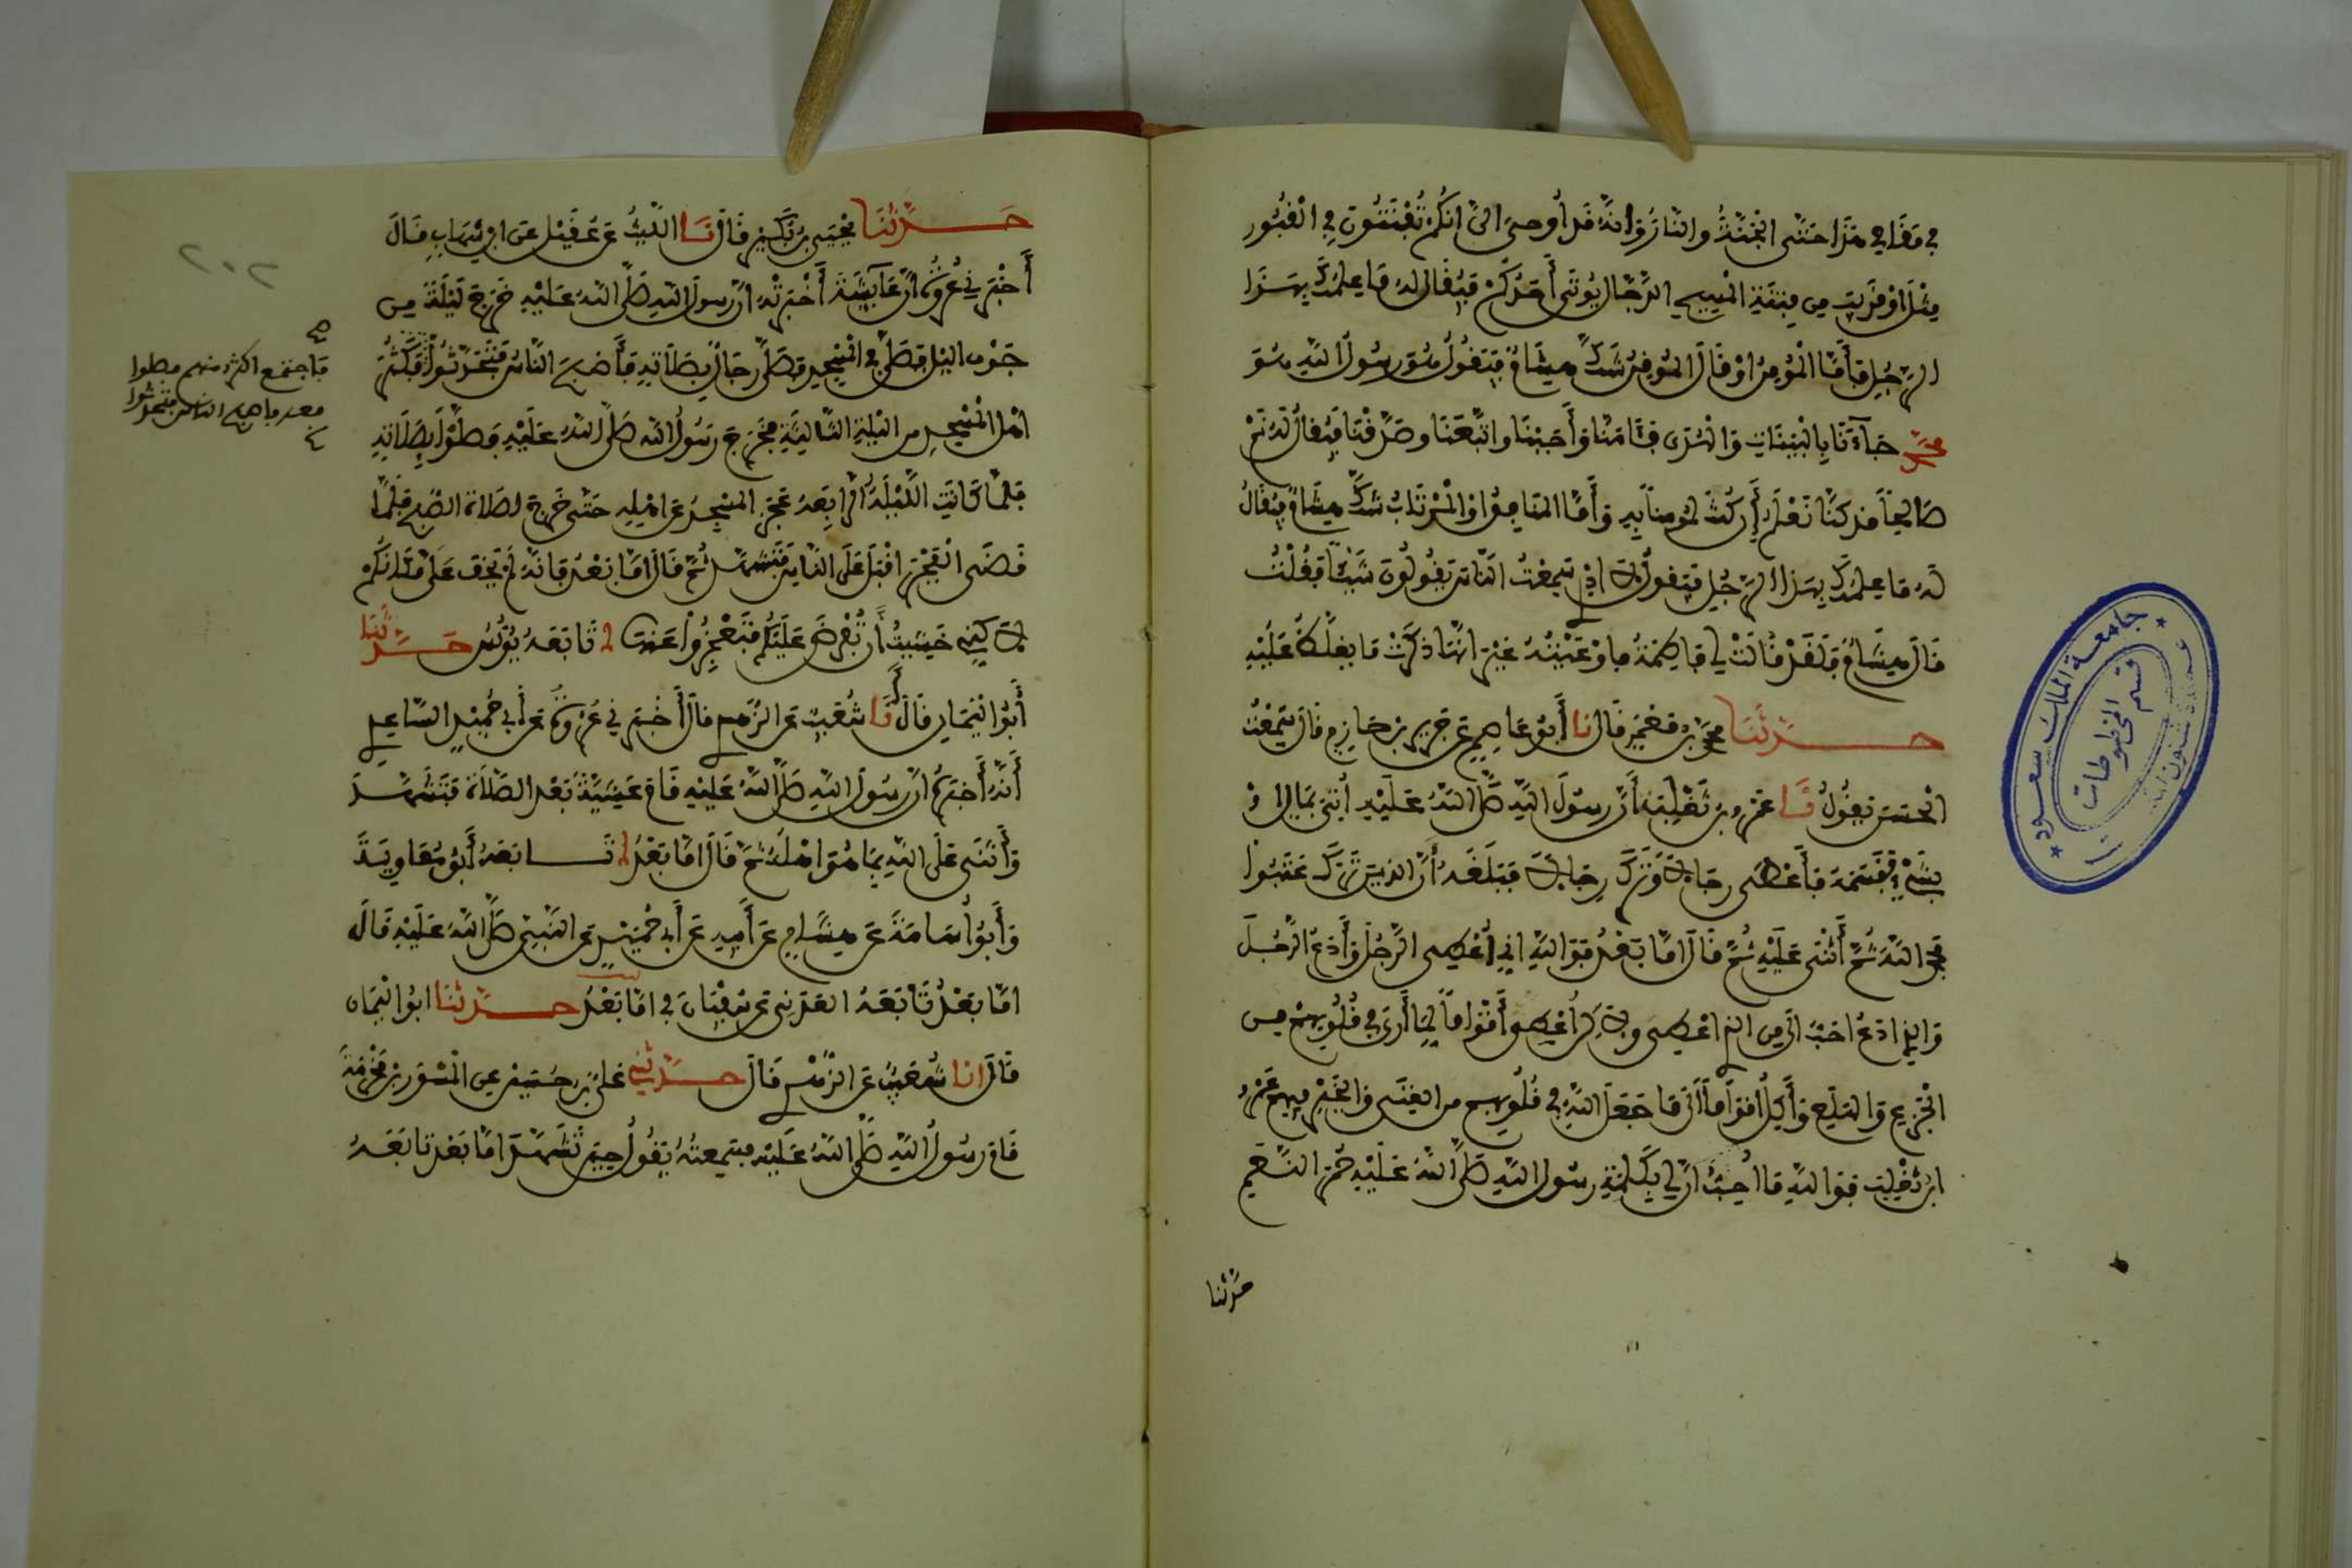 في مَقَامِي هَذَا حَتَّى الْجَنَّةُ والنَّارُ وَإِنَّهُ قَدْ أُوحِيَ إِلَيَّ أَنَّكُمْ تُفْتَنُونَ فِي الْقُبُورِ
مِثْلَ أَوْ قَرِيبَ مِن فِتْنَةِ الْمَسِيحِ الدَّجَّالِ يُوتَى أَحَدُكُمْ فَيُقَالُ لَهُ مَا عِلْمُكَ بِهَذَا
الرَّجُلِ فَأَمَّا الْمُؤْمِنُ أَوْ قَالَ الْمُوقِنُ شَكَّ هِشَامٌ فَيَقُولُ هُوَ رَسُولُ اللَّهِ هُوَ
مُحَمَّدٌ جَاءَنَا بِالْبَيِّنَاتِ وَالْهُدَى فَآمَنَّا وَأَجَبْنَا وَاتَّبَعْنَا وَصَدَّقْنَا فَيُقَالُ لَهُ نَمْ
صَالِحًا قَدْ كُنَّا نَعْلَمُ إِن كُنْتَ لَمُومِنًا بِهِ وَأَمَّا الْمُنَافِقُ أَوِ الْمُرْتَابُ شَكَّ هِشَامٌ فَيُقَالُ
لَهُ مَا عِلْمُكَ بِهَذَا الرَّجُلِ فَيَقُولُ لَا أَدْرِي سَمِعْتُ النَّاسَ يَقُولُونَ شَيْئًا فَقُلْتُ
قَالَ هِشَامٌ فَلَقَدْ قَالَتْ لِي فَاطِمَةُ فَأَوْعَيْتُهُ غَيْرَ أَنَّهَا ذَكَرَتْ مَا يُغَلَّظُ عَلَيْهِ
حَدَّثَنَا مُحَمَّدُ بْنُ مَعْمَرٍ قَالَ نا أَبُو عَاصِمٍ عَن جَرِيرِ بْنِ حَازِمٍ قَالَ سَمِعْتُ
الْحَسَنَ يَقُولُ نَا عَمْرُو بْنُ تَغْلِبَ أَنَّ رَسُولَ اللَّهِ صَلَّى اللَّهُ عَلَيْهِ أُتِيَ بِمَالٍ أَوْ
بِشَيْءٍ فَقَسَمَهُ فَأَعْطَى رِجَالًا وَتَرَكَ رِجَالًا فَبَلَغَهُ أَنَّ الَّذِينَ تَرَكَ عَتَبُوا
فَحَمِدَ اللَّهَ ثُمَّ أَثْنَى عَلَيْهِ ثُمَّ قَالَ أَمَّا بَعْدُ فَوَاللَّهِ إِنِّي أُعْطِي الرَّجُلَ وَأَدَعُ الرَّجُلَ
وَالَّذِي أَدَعُ أَحَبُّ إِلَيَّ مِنَ الَّذِي أُعْطِي وَلَكِنْ أُعْطِي أَقْوَامًا لِمَا أَرَى فِي قُلُوبِهِمْ مِنَ
الْجَزَعِ وَالْهَلَعِ وَأَكِلُ أَقْوَامًا إِلَى مَا جَعَلَ اللَّهُ فِي قُلُوبِهِمْ مِنَ الْغِنَى وَالْخَيْرِ فِيهِمْ عَمْرُو
ابْنُ تَغْلِبَ فَوَاللَّهِ مَا أُحِبُّ أَنَّ لِي بِكَلِمَةِ رَسُولِ اللَّهِ صَلَّى اللَّهُ عَلَيْهِ حُمْرَ النَّعَمِ
حدثنا
جامعة الملك سعود
قسم المخطوطات
حَدَّثَنَا يَحْيَى بْنُ بُكَيْرٍ قَالَ نَا اللَّيْثُ عَن عُقَيْلٍ عَنِ ابْنِ شِهَابٍ قَالَ
أَخْبَرَنِي عُرْوَةُ أَنَّ عَائِشَةَ أَخْبَرَتْهُ أَنَّ رَسُولَ اللَّهِ صَلَّى اللَّهُ عَلَيْهِ خَرَجَ لَيْلَةً مِن
جَوْفِ اللَّيْلِ فَصَلَّى فِي الْمَسْجِدِ فَصَلَّى رِجَالٌ بِصَلَاتِهِ فَأَصْبَحَ النَّاسُ فَتَحَدَّثُوا فَكَثُرَ
أَهْلُ الْمَسْجِدِ مِنَ اللَّيْلَةِ الثَّالِثَةِ فَخَرَجَ رَسُولُ اللَّهِ صَلَّى اللَّهُ عَلَيْهِ فَصَلَّوْا بِصَلَاتِهِ
فَلَمَّا كَانَتِ اللَّيْلَةُ الرَّابِعَةُ عَجَزَ الْمَسْجِدُ عَن أَهْلِهِ حَتَّى خَرَجَ لِصَلَاةِ الصُّبْحِ فَلَمَّا
قَضَى الْفَجْرَ أَقْبَلَ عَلَى النَّاسِ فَتَشَهَّدَ ثُمَّ قَالَ أَمَّا بَعْدُ فَإِنَّهُ لَمْ يَخْفَ عَلَيَّ مَكَانُكُمْ
لَكِنِّي خَشِيتُ أَن تُفْرَضَ عَلَيْكُمْ فَتَعْجِزُوا عَنْهَا تَابَعَهُ يُونُسُ حَدَّثَنَا
أَبُو الْيَمَانِ قَالَ أَنَا شُعَيْبٌ عَنِ الزُّهْرِي قَالَ أَخْبَرَنِي عُرْوَةُ عَن أَبِي حُمَيْدٍ السَّاعِدِي
أَنَّهُ أَخْبَرَهُ أَنَّ رَسُولَ اللَّهِ صَلَّى اللَّهُ عَلَيْهِ قَامَ عَشِيَّةً بَعْدَ الصَّلَاةِ فَتَشَهَّدَ
وَأَثْنَى عَلَى اللَّهِ بِمَا هُوَ أَهْلُهُ ثُمَّ قَالَ أَمَّا بَعْدُ تَابَعَهُ أَبُو مُعَاوِيَةَ
وَأَبُو أُسَامَةَ عَن هِشَامٍ عَن أَبِيهِ عَن أَبِي حُمَيْدٍ عَنِ النَّبِيِّ صَلَّى اللَّهُ عَلَيْهِ قَالَ
أَمَّا بَعْدُ تَابَعَهُ الْعَدَنِي عَن سُفْيَانَ فِي أَمَّا بَعْدُ حَدَّثَنَا أبُو الْيَمَانِ
قَالَ انا شُعَيْبٌ عَنِ الزُّهْرِي قَالَ حَدَّثَنِي عَلِيُّ بْنُ حُسَيْنٍ عَنِ الْمِسْوَرِ بْنِ مَخْرَمَةَ
قَامَ رَسُولُ اللَّهِ صَلَّى اللَّهُ عَلَيْهِ فَسَمِعْتُهُ يَقُولُ حِينَ تَشَهَّدَ أَمَّا بَعْدُ تَابَعَهُ
٢٠٢
فاجتمع اكثر منهم فصلوا
معه فاصبح الناس فتحدثوا